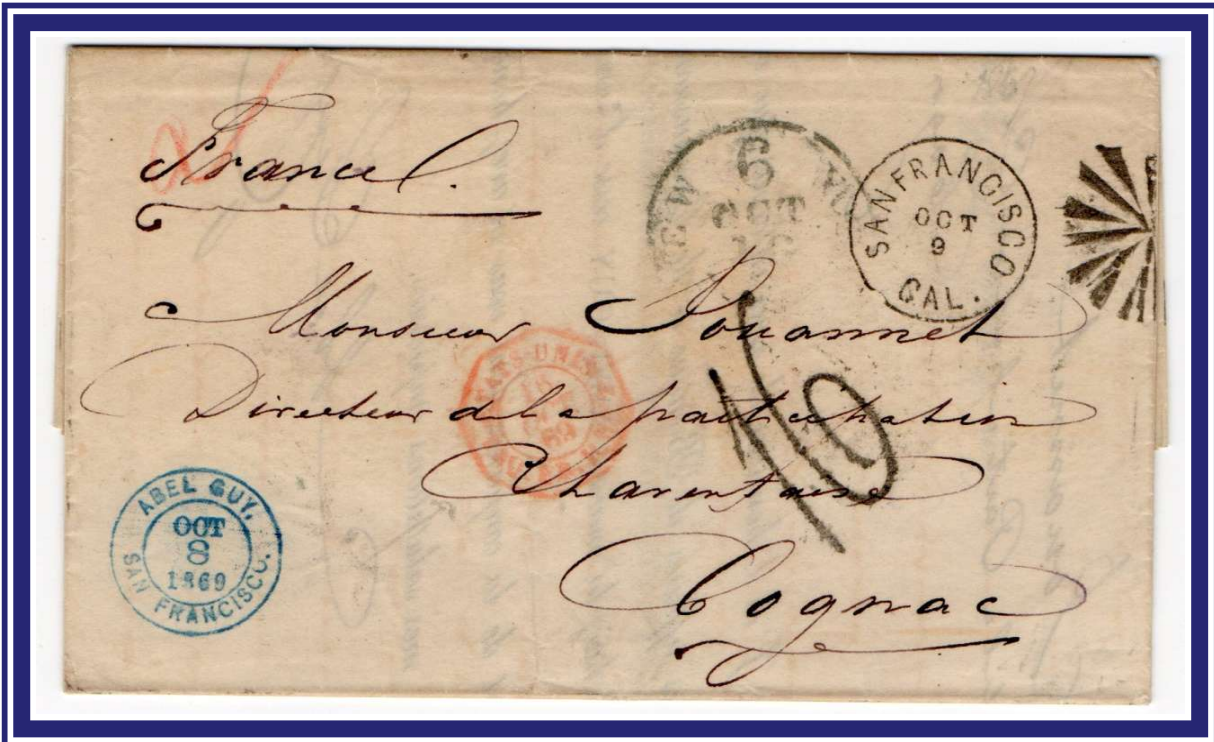 France.
6
NEW YORK
OCT
16
SAN FRANCISCO
OCT
9
CAL.
Monsieur Pouannet
Directeur de la participation
Charentaise
Cognac
16
ETATS-UNIS
69
ABEL GUY,
OCT
8
1869
SAN FRANCISCO.